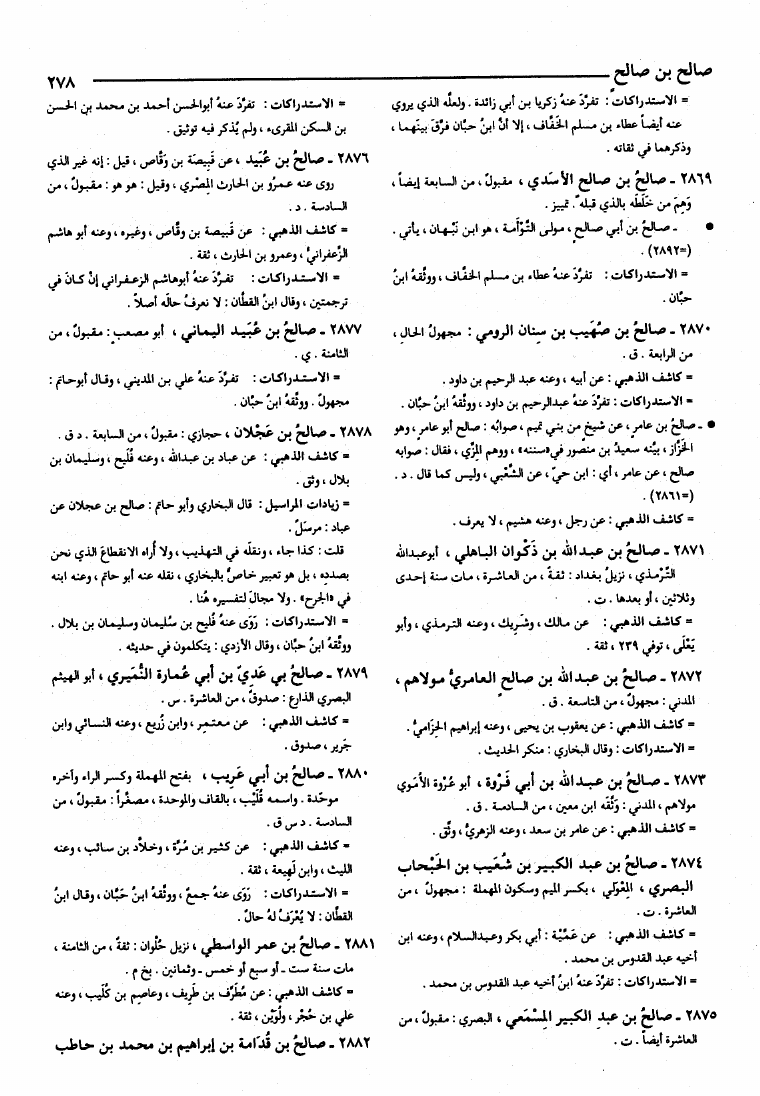 صالح بن صالح
٢٧٨
= الاستدراكات : تفرَّدَ عنهُ زكريا بن أبي زائدة . ولعلَّه الذي يروي
عنه أيضاً عطاء بن مسلم الخَفَّاف ، إلا أنَّ ابنُ حبَّان فرَّقَ بينَهما ،
وذكرهما في ثقاته .
٢٨٦٩ ـ صالحُ بن صالح الأسَدي ، مقبولٌ ، من السابعة أيضاً ،
وَهِمَ من خَلَطَه بالذي قبله . تمييز .
● ـ صالحُ بن أبي صالحٍ ، مولى التَّوْأمة ، هو ابن نَبْهان ، يأتي .
(=٢٨٩٢) .
= الاستدراكات : تفرَّدَ عنهُ عطاء بن مسلم الخَفَّاف ، ووثَّقهُ ابنُ
حبَّان .
٢٨٧٠ ـ صالحُ بن صُهَيب بن سِنان الرومي : مجهولُ الحالِ ،
من الرابعة . ق .
= كاشف الذهبي : عن أبيه ، وعنه عبد الرحيم بن داود .
= الاستدراكات : تفرَّدَ عنهُ عبدالرحيم بن داود ، ووثَّقهُ ابنُ حبَّان .
● ـ صالحُ بن عامرٍ ، عن شيخٍ من بني تميم ، صوابُه : صالح أبو عامرٍ ، وهو
الخزَّاز ، بيَّنه سعيدُ بن منصور في «سننه» ، ووهم المِزِّي ، فقال : صوابه
صالح ، عن عامر ، أي : ابن حيّ ، عن الشَّعْبي ، وليس كما قال . د .
(=٢٨٦١) .
= كاشف الذهبي : عن رجل ، وعنه هشيم ، لا يعرف .
٢٨٧١ ـ صالحُ بن عبدالله بن ذَكْوان الباهلي ، أبوعبدالله
التِّرْمذي ، نزيلُ بغداد : ثقةٌ ، من العاشرة ، مات سنة إحدى
وثلاثين ، أو بعدها . ت .
= كاشف الذهبي : عن مالك ، وشَريك ، وعنه الترمذي ، وأبو
يَعْلَى ، توفي ٢٣٩ ، ثقة .
٢٨٧٢ ـ صالحُ بن عبدالله بن صالحٍ العامريُّ مولاهم ،
المدني : مجهولٌ ، من التاسعة . ق .
= كاشف الذهبي : عن يعقوب بن يحيى ، وعنه إبراهيم الحِزَاميُّ .
= الاستدراكات : وقال البخاري : منكر الحديث .
٢٨٧٣ ـ صالحُ بن عبدالله بن أبي فَرْوة ، أبو عُرْوة الأمَوي
مولاهم ، المدني : وَثَّقه ابن معين ، من السادسة . ق .
= كاشف الذهبي : عن عامر بن سعد ، وعنه الزهريُّ ، وثِّق .
٢٨٧٤ ـ صالحُ بن عبد الكبير بن شُعَيب بن الحَبْحاب
البصري ، المِعْوَلي ، بكسر الميم وسكون المهملة : مجهولٌ ، من
العاشرة . ت .
= كاشف الذهبي : عن عَمَّيْه : أبي بكر وعبدالسلام ، وعنه ابن
أخيه عبد القدوس بن محمد .
= الاستدراكات : تفرَّدَ عنهُ ابنُ أخيه عبد القدوس بن محمد .
٢٨٧٥ ـ صالحُ بن عبد الكبير المِسْمَعي ، البصري : مقبولٌ ، من
العاشرة أيضاً . ت .
= الاستدراكات : تفرَّدَ عنهُ أبوالحسن أحمد بن محمد بن الحسن
بن السكن المقرىء ، ولم يُذكر فيه توثيق .
٢٨٧٦ ـ صالحُ بن عُبَيد ، عن قَبِيصَة بن وَقَّاص ، قيل : إنه غير الذي
روى عنه عمرُو بن الحارث المِصْري ، وقيل : هو هو : مقبولٌ ، من
السادسة . د .
= كاشف الذهبي : عن قَبيصة بن وقَّاص ، وغيره ، وعنه أبو هاشم
الزَّعفرانيُّ ، وعمرو بن الحارث ، ثقة .
= الاستدراكات : تفرَّدَ عنهُ أبوهاشم الزعفراني إنْ كانَ في
ترجمتين ، وقال ابنُ القطَّان : لا نعرفُ حالَه أصلاً .
٢٨٧٧ ـ صالحُ بن عُبَيد اليماني ، أبو مصعب : مقبولٌ ، من
الثامنة . ي .
= الاستدراكات : تفرَّدَ عنهُ علي بن المديني ، وقال أبوحاتم :
مجهولٌ . ووثَّقهُ ابنُ حبَّان .
٢٨٧٨ ـ صالحُ بن عَجْلان ، حجازي : مقبولٌ ، من السابعة . د ق .
= كاشف الذهبي : عن عباد بن عبدالله ، وعنه فُلَيح ، وسليمان بن
بلال ، وثق .
= زيادات المراسيل : قال البخاري وأبو حاتم : صالح بن عجلان عن
عباد : مرسَلٌ .
قلت : كذا جاء ، ونقلَه في التهذيب ، ولا أُراه الانقطاعَ الذي نحن
بصدده ، بل هو تعبير خاصٌّ بالبخاري ، نقله عنه أبو حاتم ، وعنه ابنه
في «الجرح» . ولا مجالَ لتفسيره هُنا .
= الاستدراكات : رَوَى عنهُ فُليح بن سُليمان وسليمان بن بلال .
ووثَّقهُ ابنُ حبَّان ، وقال الأزدي : يتكلمون في حديثه .
٢٨٧٩ ـ صالحُ بن عَديّ بن أبي عُمارة النُّمَيري ، أبو الهيثم
البصري الذارع : صدوقٌ ، من العاشرة . س .
= كاشف الذهبي : عن معتمرٍ ، وابن زُريع ، وعنه النسائي وابن
جَرير ، صدوق .
٢٨٨٠ ـ صالحُ بن أبي عَرِيب ، بفتح المهملة وكسر الراء وآخره
موحَّدة . واسمه قُلَيْب ، بالقاف والموحدة ، مصغَّراً : مقبولٌ ، من
السادسة . د س ق .
= كاشف الذهبي : عن كثير بن مُرَّة ، وخلاَّد بن سائب ، وعنه
الليث ، وابن لَهيعة ، ثقة .
= الاستدراكات : رَوَى عنهُ جمعٌ ، ووثَّقهُ ابنُ حبَّان ، وقال ابنُ
القطَّان : لا يُعْرَفُ لهُ حالٌ .
٢٨٨١ ـ صالحُ بن عمر الواسطي ، نزيل حُلْوان : ثقةٌ ، من الثامنة ،
مات سنة ست ـ أو سبع أو خمس ـ وثمانين . بخ م .
= كاشف الذهبي : عن مُطَرِّف بن طَريف ، وعاصم بن كُلَيب ، وعنه
علي بن حُجْر ، ولُوَيْن ، ثقة .
٢٨٨٢ ـ صالحُ بن قُدَامة بن إبراهيم بن محمد بن حاطب